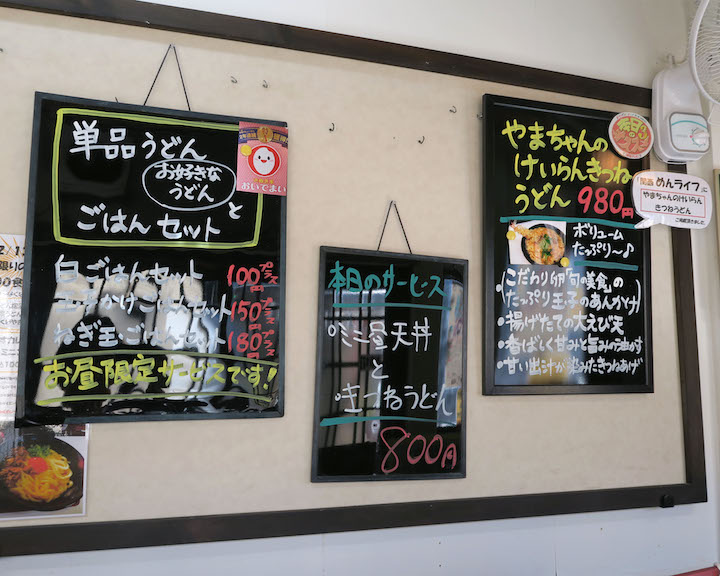 単品うどん
お好きな
うどん
と
ごはんセット
おいでまい
白ごはんセット 100円プラス
玉子かけごはんセット 150円プラス
ねぎ玉ごはんセット 180円プラス
お昼限定サービスです!
本日のサービス
ミニ昼天丼
と
きつねうどん
800円
やまちゃんの
けいらんきつね
うどん 980円
ボリューム
たっぷり〜♪
・こだわり卵「旬の美食」の
たっぷり玉子のあんかけ
・揚げたての大えび天
・香ばしく甘みと旨みの油かす
・甘い出汁が染みたきつねあげ
めんライフに
やまちゃんのけいらん
きつねうどん